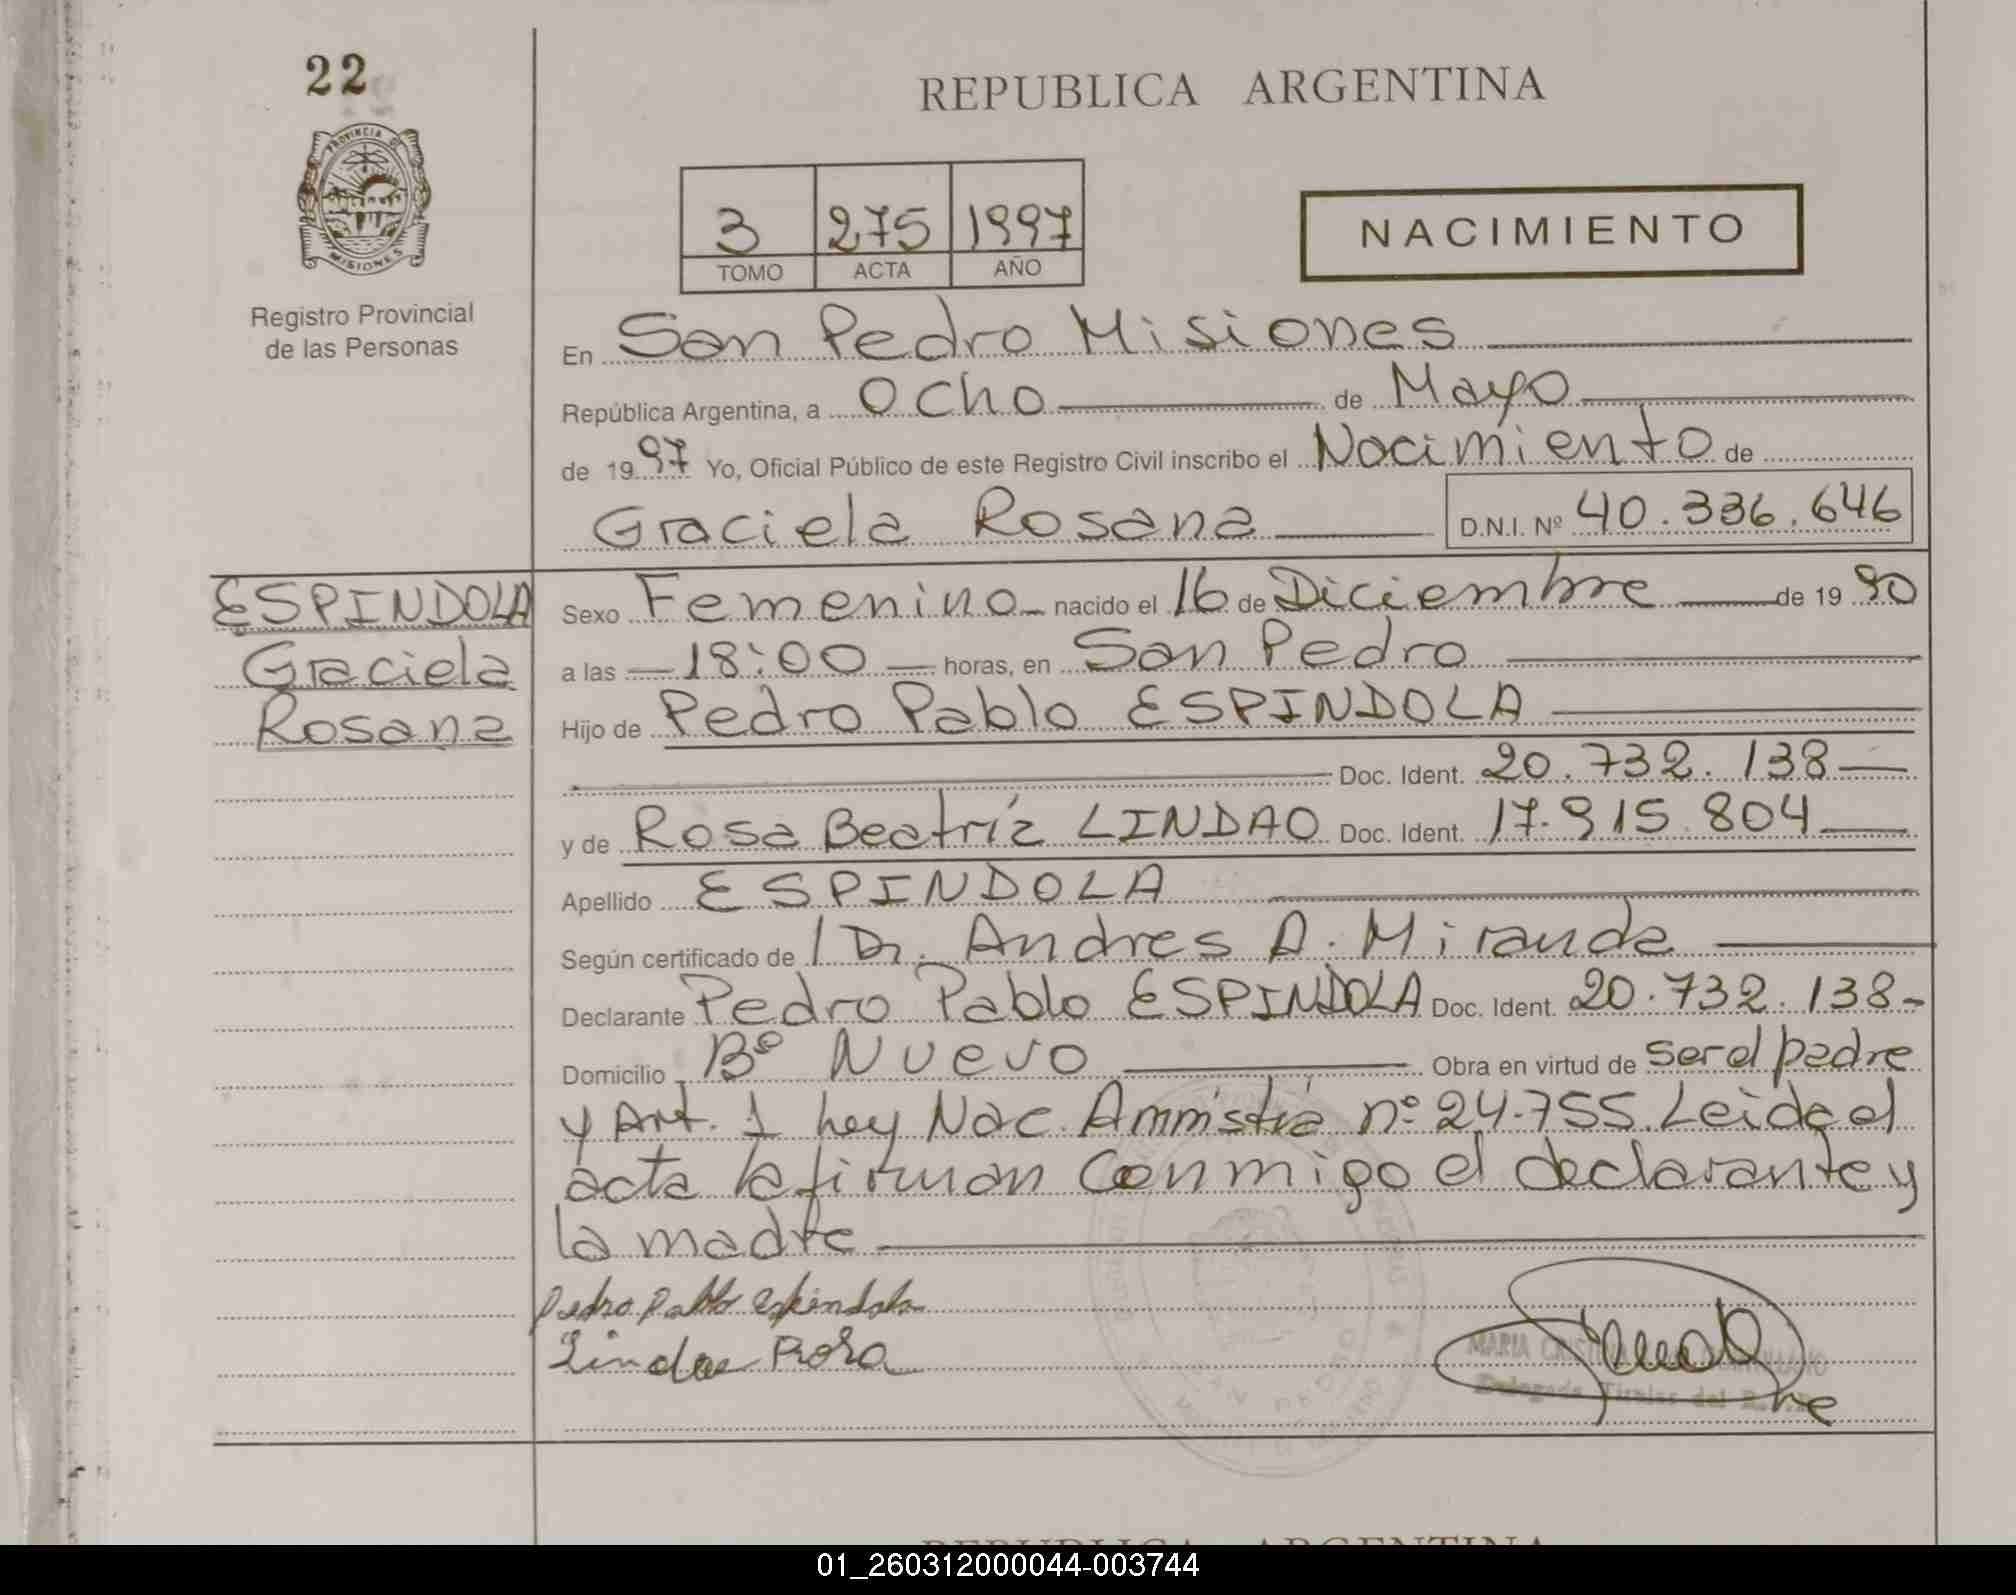 22
REPUBLICA ARGENTINA
PROVINCIA DE
MISIONES
Registro Provincial
de las Personas
3 275 1997
TOMO ACTA AÑO
NACIMIENTO
En San Pedro Misiones
República Argentina, a Ocho de Mayo
de 1997 Yo, Oficial Público de este Registro Civil inscribo el Nacimiento de
Graciela Rosana D.N.I. Nº 40.336.646
ESPINDOLA
Graciela
Rosana
Sexo Femenino nacido el 16 de Diciembre de 1990
a las 18:00 horas, en San Pedro
Hijo de Pedro Pablo ESPINDOLA
Doc. Ident. 20.732.138
y de Rosa Beatríz LINDAO Doc. Ident. 17.915.804
Apellido ESPINDOLA
Según certificado de / Dr. Andres A. Miranda
Declarante Pedro Pablo ESPINDOLA Doc. Ident. 20.732.138-
Domicilio Bº Nuevo Obra en virtud de ser el padre
y Art. 1 ley Nac. Amnistía nº 24.755. Leida el
acta la firman conmigo el declarante y
la madre
Pedro Pablo Espindola
Lindao Rosa
MARIA CRISTINA
Delegada Titular del
SAN PEDRO
REPUBLICA ARGENTINA
01_260312000044-003744